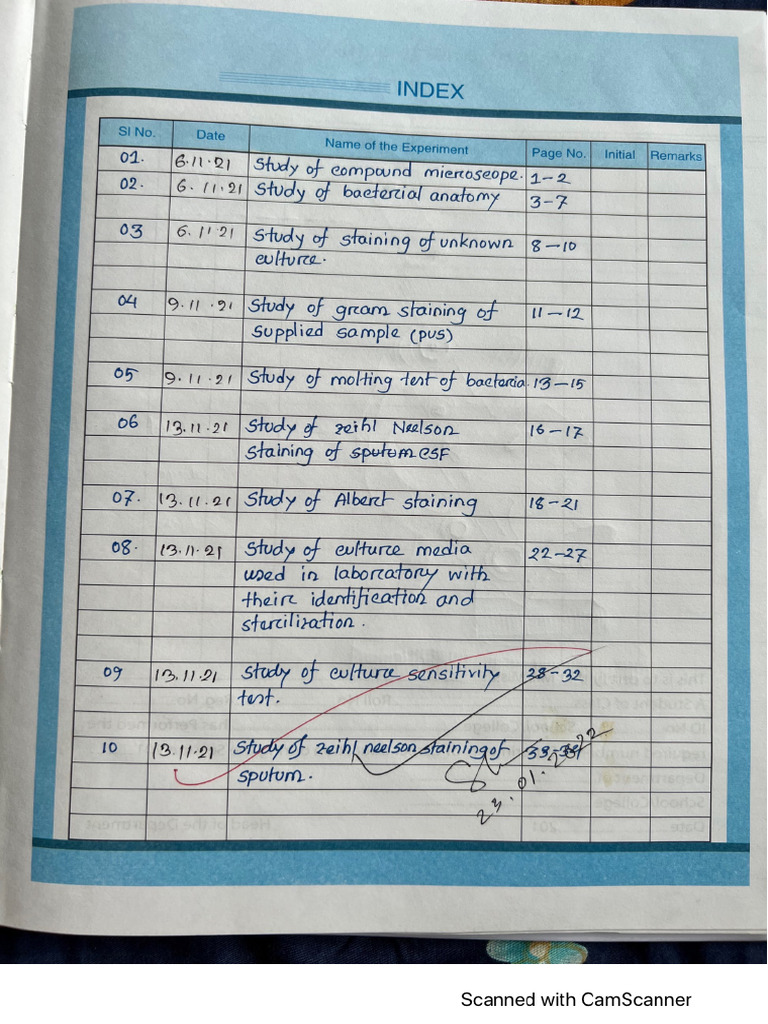 INDEX
Sl No. Date Name of the Experiment Page No. Initial Remarks
01. 6.11.21 Study of compound microscope. 1-2
02. 6.11.21 Study of bacterial anatomy 3-7
03 6.11.21 Study of staining of unknown 8-10
culture.
04 9.11.21 Study of gram staining of 11-12
supplied sample (pus)
05 9.11.21 Study of molting test of bacteria. 13-15
06 13.11.21 Study of zeihl Neelson 16-17
staining of sputum CSF
07. 13.11.21 Study of Albert staining 18-21
08. 13.11.21 Study of culture media 22-27
used in laboratory with
their identification and
sterilization.
09 13.11.21 Study of culture sensitivity 28-32
test.
10 13.11.21 Study of zeihl neelson staining of
sputum.
23.01.2022
Scanned with CamScanner